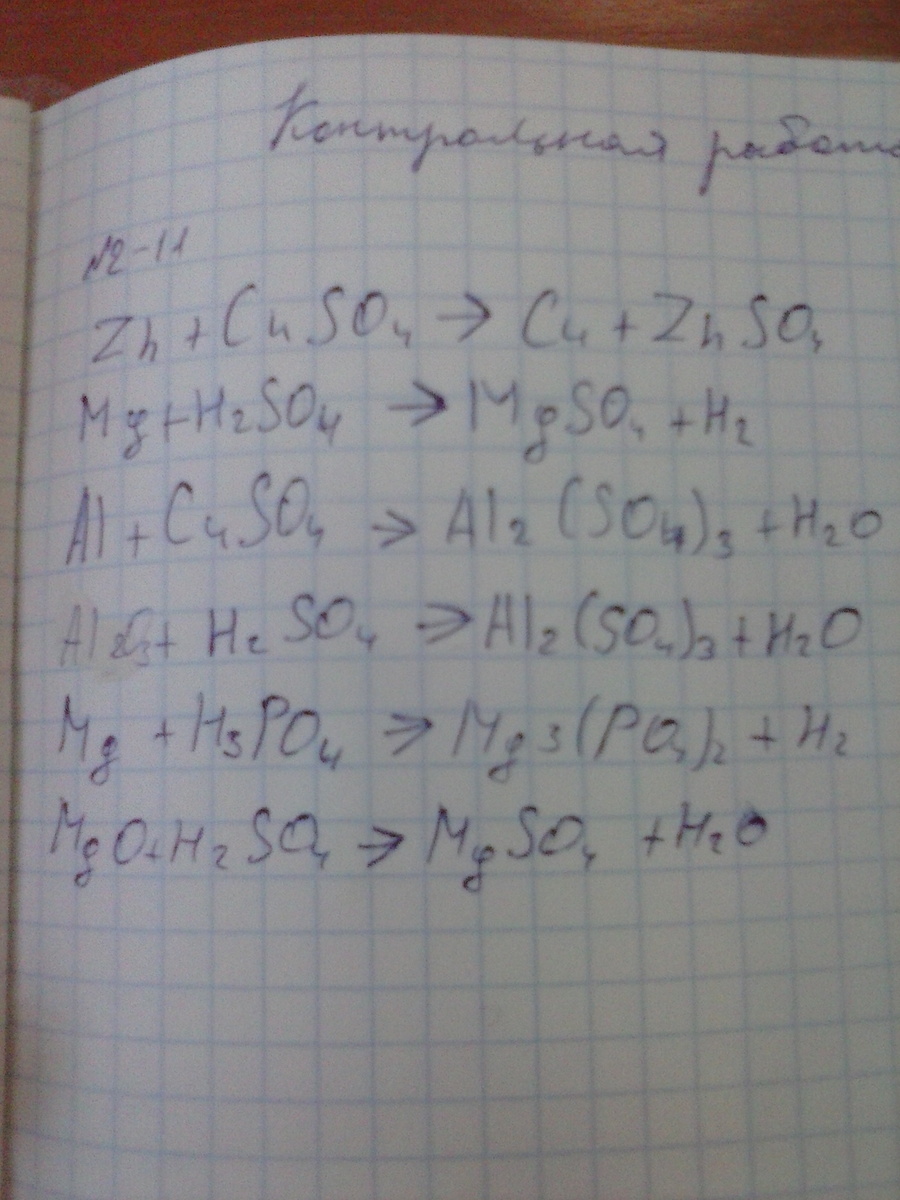 Контрольная работа
№2-11
Zn + CuSO4 → Cu + ZnSO4
Mg + H2SO4 → MgSO4 + H2
Al + CuSO4 → Al2(SO4)3 + H2O
Al2O3 + H2SO4 → Al2(SO4)3 + H2O
Mg + H3PO4 → Mg3(PO4)2 + H2
MgO + H2SO4 → MgSO4 + H2O